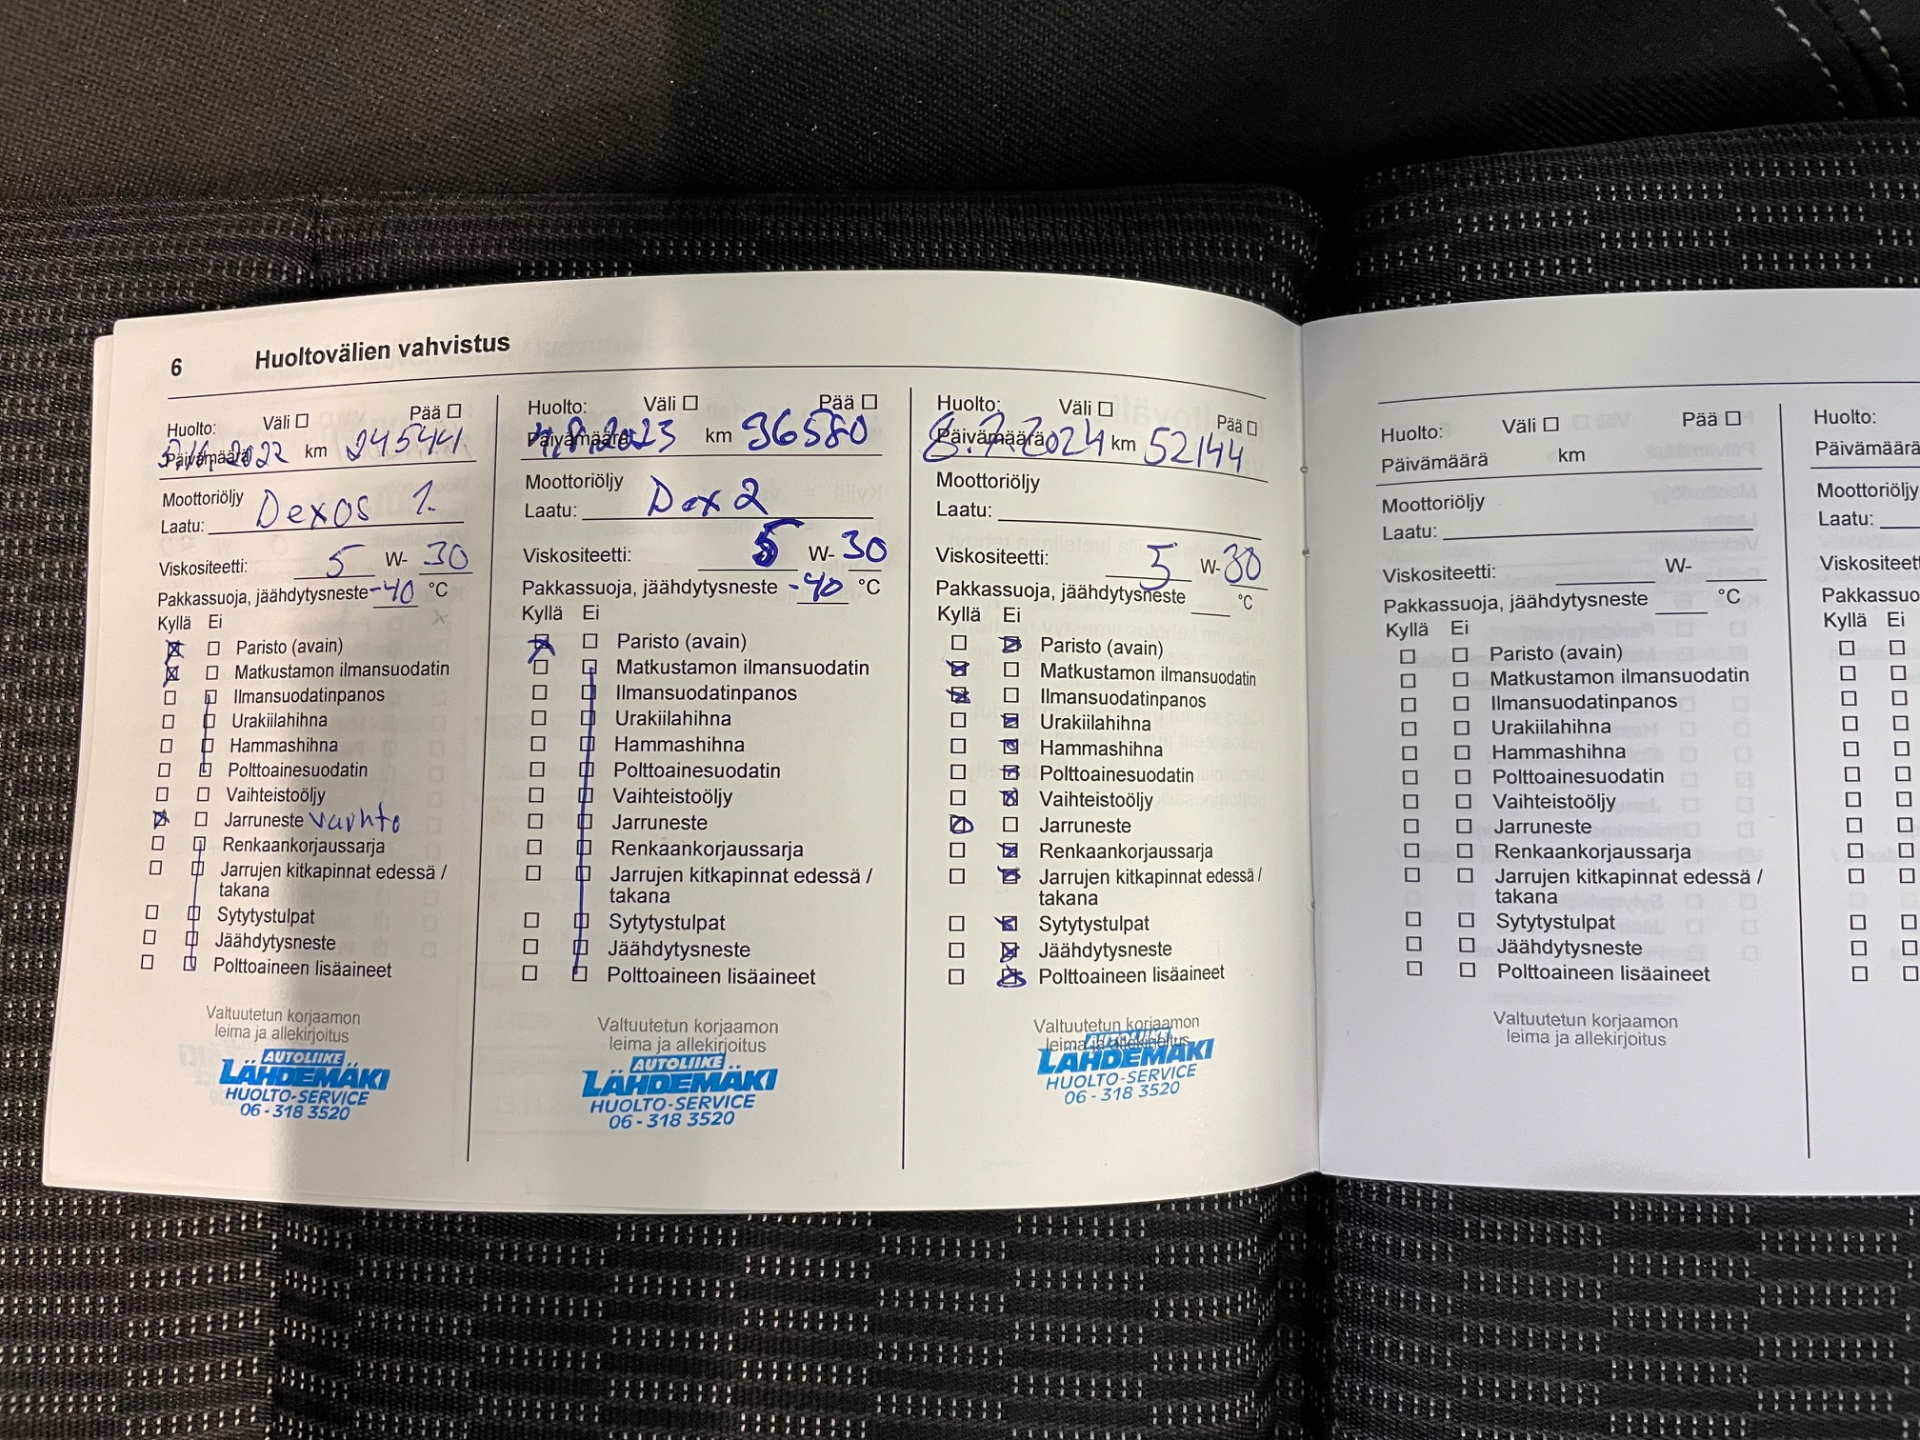 6 Huoltovälien vahvistus
Huolto: Väli Pää
Päivämäärä 2022 km 24544
Moottoriöljy
Laatu: Dexos 1.
Viskositeetti: 5 W- 30
Pakkassuoja, jäähdytysneste -40 °C
Kyllä Ei
Paristo (avain)
Matkustamon ilmansuodatin
Ilmansuodatinpanos
Urakiilahihna
Hammashihna
Polttoainesuodatin
Vaihteistoöljy
Jarruneste vaihto
Renkaankorjaussarja
Jarrujen kitkapinnat edessä /
takana
Sytytystulpat
Jäähdytysneste
Polttoaineen lisäaineet
Valtuutetun korjaamon
leima ja allekirjoitus
AUTOLIIKE
LÄHDEMÄKI
HUOLTO-SERVICE
06 - 318 3520
Huolto: Väli Pää
Päivämäärä 2023 km 36580
Moottoriöljy
Laatu: Dex 2
Viskositeetti: 5 W- 30
Pakkassuoja, jäähdytysneste -40 °C
Kyllä Ei
Paristo (avain)
Matkustamon ilmansuodatin
Ilmansuodatinpanos
Urakiilahihna
Hammashihna
Polttoainesuodatin
Vaihteistoöljy
Jarruneste
Renkaankorjaussarja
Jarrujen kitkapinnat edessä /
takana
Sytytystulpat
Jäähdytysneste
Polttoaineen lisäaineet
Valtuutetun korjaamon
leima ja allekirjoitus
AUTOLIIKE
LÄHDEMÄKI
HUOLTO-SERVICE
06 - 318 3520
Huolto: Väli Pää
Päivämäärä 8.7.2024 km 52144
Moottoriöljy
Laatu:
Viskositeetti: 5 W- 30
Pakkassuoja, jäähdytysneste °C
Kyllä Ei
Paristo (avain)
Matkustamon ilmansuodatin
Ilmansuodatinpanos
Urakiilahihna
Hammashihna
Polttoainesuodatin
Vaihteistoöljy
Jarruneste
Renkaankorjaussarja
Jarrujen kitkapinnat edessä /
takana
Sytytystulpat
Jäähdytysneste
Polttoaineen lisäaineet
Valtuutetun korjaamon
leima ja allekirjoitus
AUTOLIIKE
LÄHDEMÄKI
HUOLTO-SERVICE
06 - 318 3520
Huolto: Väli Pää
Päivämäärä km
Moottoriöljy
Laatu:
Viskositeetti: W-
Pakkassuoja, jäähdytysneste °C
Kyllä Ei
Paristo (avain)
Matkustamon ilmansuodatin
Ilmansuodatinpanos
Urakiilahihna
Hammashihna
Polttoainesuodatin
Vaihteistoöljy
Jarruneste
Renkaankorjaussarja
Jarrujen kitkapinnat edessä /
takana
Sytytystulpat
Jäähdytysneste
Polttoaineen lisäaineet
Valtuutetun korjaamon
leima ja allekirjoitus
Huolto:
Päivämäärä
Moottoriöljy
Laatu:
Viskositeet
Pakkassuo
Kyllä Ei